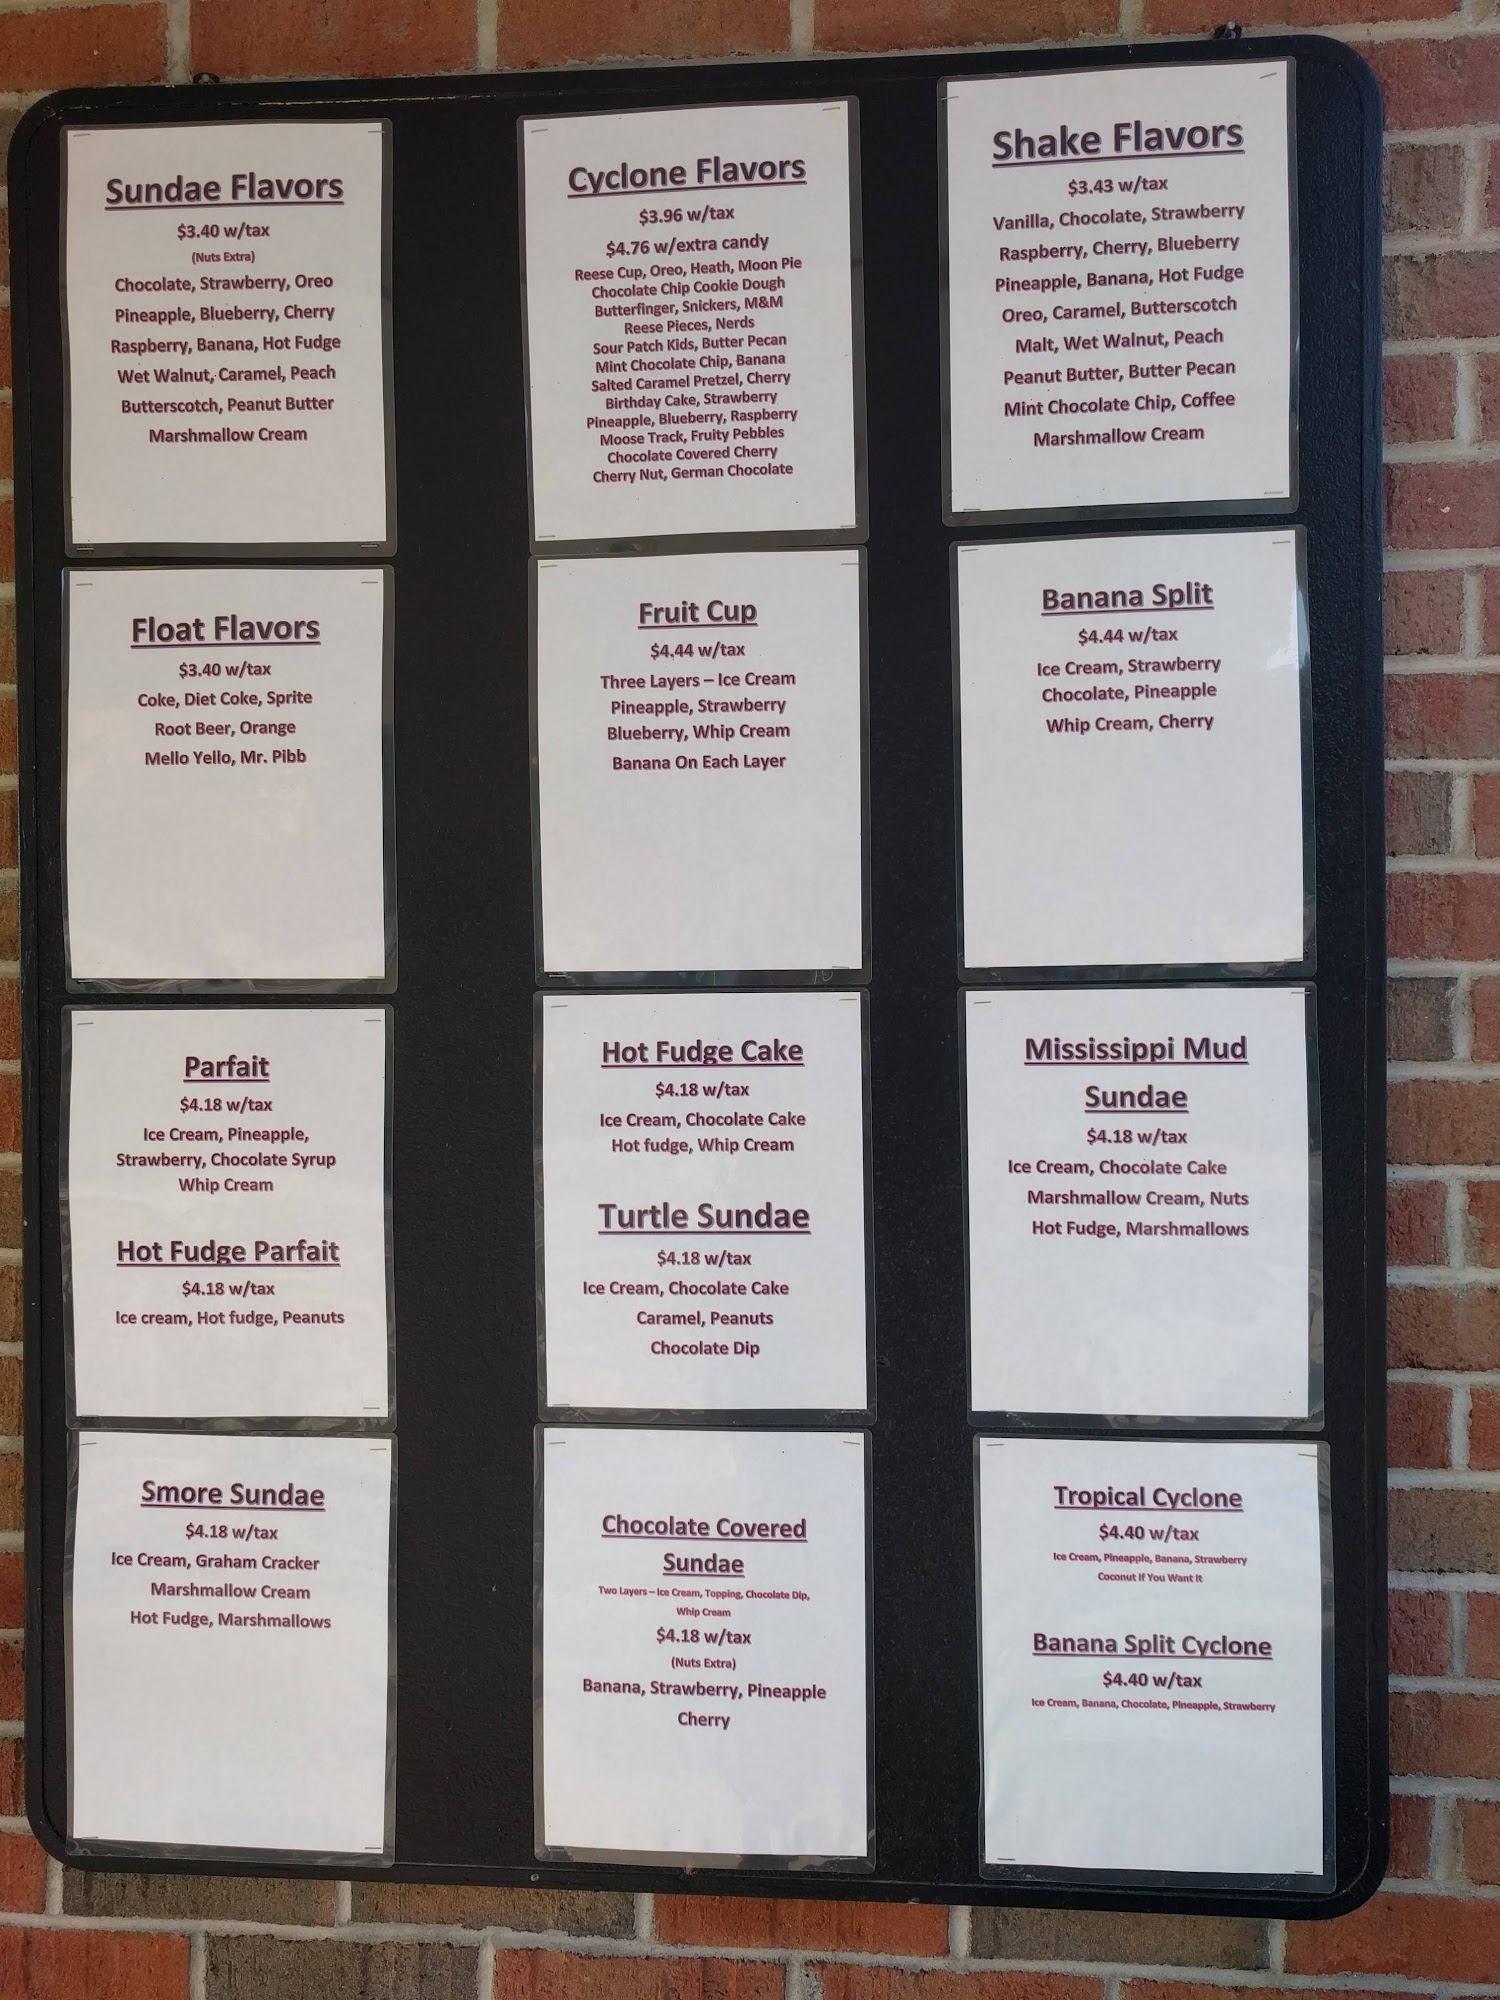 Sundae Flavors
$3.40 w/tax
(Nuts Extra)
Chocolate, Strawberry, Oreo
Pineapple, Blueberry, Cherry
Raspberry, Banana, Hot Fudge
Wet Walnut, Caramel, Peach
Butterscotch, Peanut Butter
Marshmallow Cream
Cyclone Flavors
$3.96 w/tax
$4.76 w/extra candy
Reese Cup, Oreo, Heath, Moon Pie
Chocolate Chip Cookie Dough
Butterfinger, Snickers, M&M
Reese Pieces, Nerds
Sour Patch Kids, Butter Pecan
Mint Chocolate Chip, Banana
Salted Caramel Pretzel, Cherry
Birthday Cake, Strawberry
Pineapple, Blueberry, Raspberry
Moose Track, Fruity Pebbles
Chocolate Covered Cherry
Cherry Nut, German Chocolate
Shake Flavors
$3.43 w/tax
Vanilla, Chocolate, Strawberry
Raspberry, Cherry, Blueberry
Pineapple, Banana, Hot Fudge
Oreo, Caramel, Butterscotch
Malt, Wet Walnut, Peach
Peanut Butter, Butter Pecan
Mint Chocolate Chip, Coffee
Marshmallow Cream
Float Flavors
$3.40 w/tax
Coke, Diet Coke, Sprite
Root Beer, Orange
Mello Yello, Mr. Pibb
Fruit Cup
$4.44 w/tax
Three Layers – Ice Cream
Pineapple, Strawberry
Blueberry, Whip Cream
Banana On Each Layer
Banana Split
$4.44 w/tax
Ice Cream, Strawberry
Chocolate, Pineapple
Whip Cream, Cherry
Parfait
$4.18 w/tax
Ice Cream, Pineapple,
Strawberry, Chocolate Syrup
Whip Cream
Hot Fudge Parfait
$4.18 w/tax
Ice cream, Hot fudge, Peanuts
Hot Fudge Cake
$4.18 w/tax
Ice Cream, Chocolate Cake
Hot fudge, Whip Cream
Turtle Sundae
$4.18 w/tax
Ice Cream, Chocolate Cake
Caramel, Peanuts
Chocolate Dip
Mississippi Mud
Sundae
$4.18 w/tax
Ice Cream, Chocolate Cake
Marshmallow Cream, Nuts
Hot Fudge, Marshmallows
Smore Sundae
$4.18 w/tax
Ice Cream, Graham Cracker
Marshmallow Cream
Hot Fudge, Marshmallows
Chocolate Covered
Sundae
Two Layers – Ice Cream, Topping, Chocolate Dip,
Whip Cream
$4.18 w/tax
(Nuts Extra)
Banana, Strawberry, Pineapple
Cherry
Tropical Cyclone
$4.40 w/tax
Ice Cream, Pineapple, Banana, Strawberry
Coconut If You Want It
Banana Split Cyclone
$4.40 w/tax
Ice Cream, Banana, Chocolate, Pineapple, Strawberry